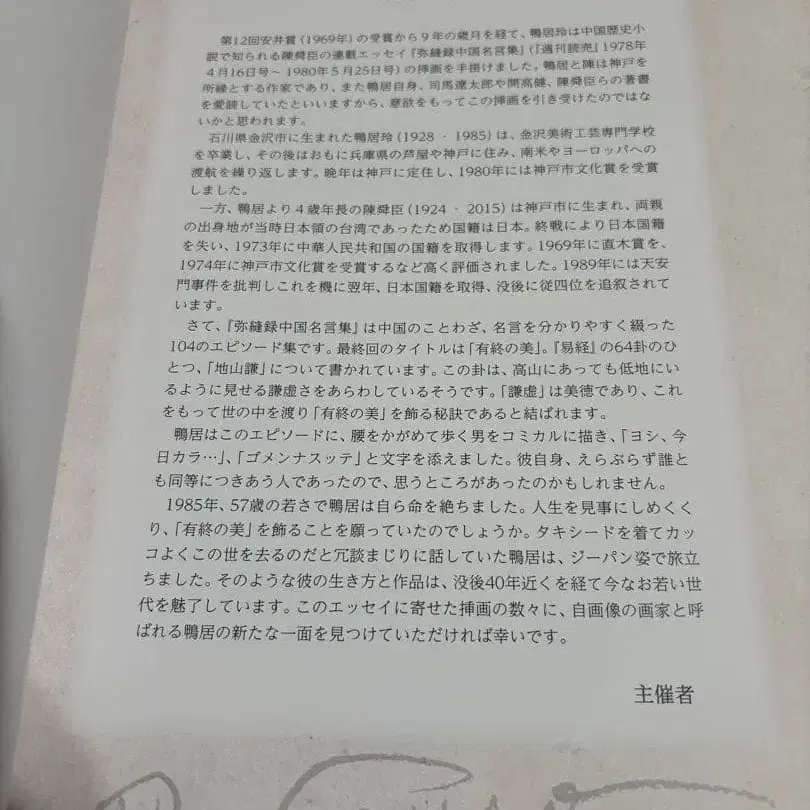 第12回安井賞(1969年)の受賞から9年の歳月を経て、鴨居玲は中国歴史小
説で知られる陳舜臣の連載エッセイ『弥縫録中国名言集』(『週刊読売』1978年
4月16日号〜1980年5月25日号)の挿画を手掛けました。鴨居と陳は神戸を
所縁とする作家であり、また鴨居自身、司馬遼太郎や開高健、陳舜臣らの著書
を愛読していたといいますから、意欲をもってこの挿画を引き受けたのではな
いかと思われます。
石川県金沢市に生まれた鴨居玲(1928‐1985)は、金沢美術工芸専門学校
を卒業し、その後はおもに兵庫県の芦屋や神戸に住み、南米やヨーロッパへの
渡航を繰り返します。晩年は神戸に定住し、1980年には神戸市文化賞を受賞
しました。
一方、鴨居より4歳年長の陳舜臣(1924‐2015)は神戸市に生まれ、両親
の出身地が当時日本領の台湾であったため国籍は日本。終戦により日本国籍
を失い、1973年に中華人民共和国の国籍を取得します。1969年に直木賞を、
1974年に神戸市文化賞を受賞するなど高く評価されました。1989年には天安
門事件を批判しこれを機に翌年、日本国籍を取得、没後に従四位を追叙されて
います。
さて、『弥縫録中国名言集』は中国のことわざ、名言を分かりやすく綴った
104のエピソード集です。最終回のタイトルは「有終の美」。『易経』の64卦のひ
とつ、「地山謙」について書かれています。この卦は、高山にあっても低地にい
るように見せる謙虚さをあらわしているそうです。「謙虚」は美徳であり、これ
をもって世の中を渡り「有終の美」を飾る秘訣であると結ばれます。
鴨居はこのエピソードに、腰をかがめて歩く男をコミカルに描き、「ヨシ、今
日カラ…」、「ゴメンナスッテ」と文字を添えました。彼自身、えらぶらず誰と
も同等につきあう人であったので、思うところがあったのかもしれません。
1985年、57歳の若さで鴨居は自ら命を絶ちました。人生を見事にしめくく
り、「有終の美」を飾ることを願っていたのでしょうか。タキシードを着てカッ
コよくこの世を去るのだと冗談まじりに話していた鴨居は、ジーパン姿で旅立
ちました。そのような彼の生き方と作品は、没後40年近くを経て今なお若い世
代を魅了しています。このエッセイに寄せた挿画の数々に、自画像の画家と呼
ばれる鴨居の新たな一面を見つけていただければ幸いです。
主催者